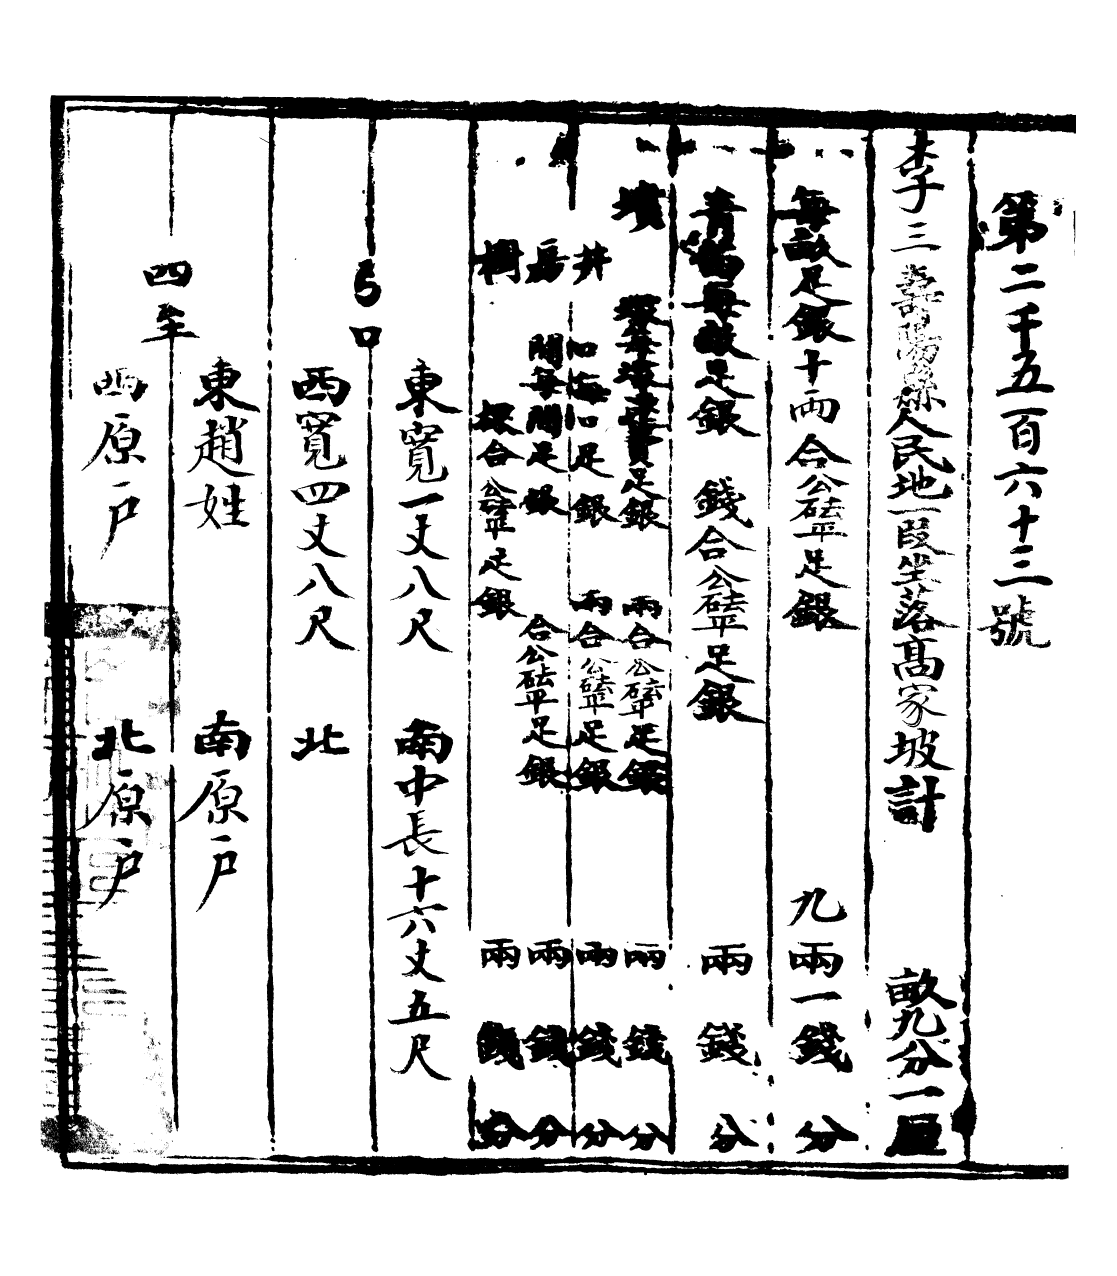 第二千五百六十三號
李三壽陽縣人民地一段坐落髙家坡計 畝九分一厘
每畝足銀十兩合公砝平足銀 九兩一錢 分
青苗每畝足銀 錢合公砝平足銀 兩 錢 分
墳 足銀 兩合公砝平足銀 兩 錢 分
井 口每口足銀 兩合公砝平足銀 兩 錢 分
房 間每間足銀 合公砝平足銀 兩 錢 分
樹 棵合公砝平足銀 兩 錢 分
弓口
東寬一丈八尺 南中長十六丈五尺
西寬四丈八尺 北
四至
東趙姓 南原戶
西原戶 北原戶